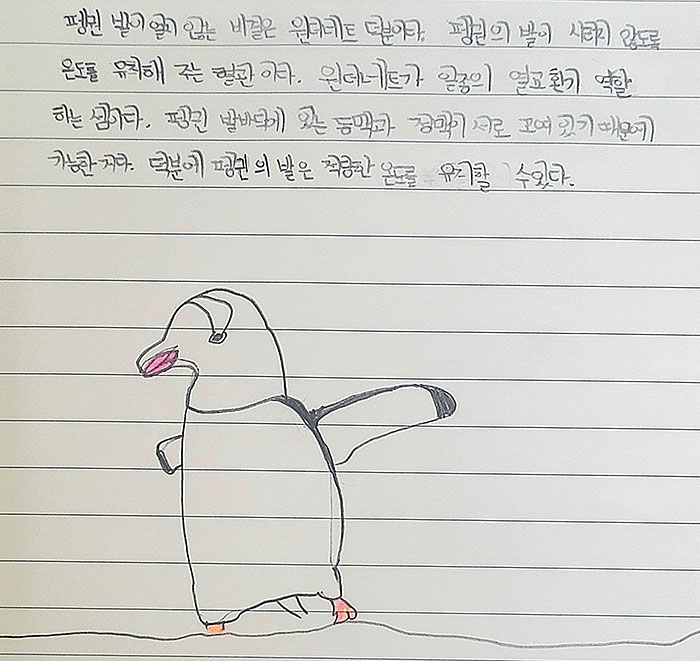 펭귄 발이 얼지 않는 비결은 원더네트 덕분이다. 펭귄의 발이 시리지 않도록
온도를 유지해 주는 혈관 이다. 원더네트가 일종의 열교환기 역할
하는 셈이다. 펭귄 발바닥에 있는 동맥과 정맥이 서로 꼬여 있기 때문에
가능한 거다. 덕분에 펭귄의 발은 적당한 온도를 유지할 수있다.